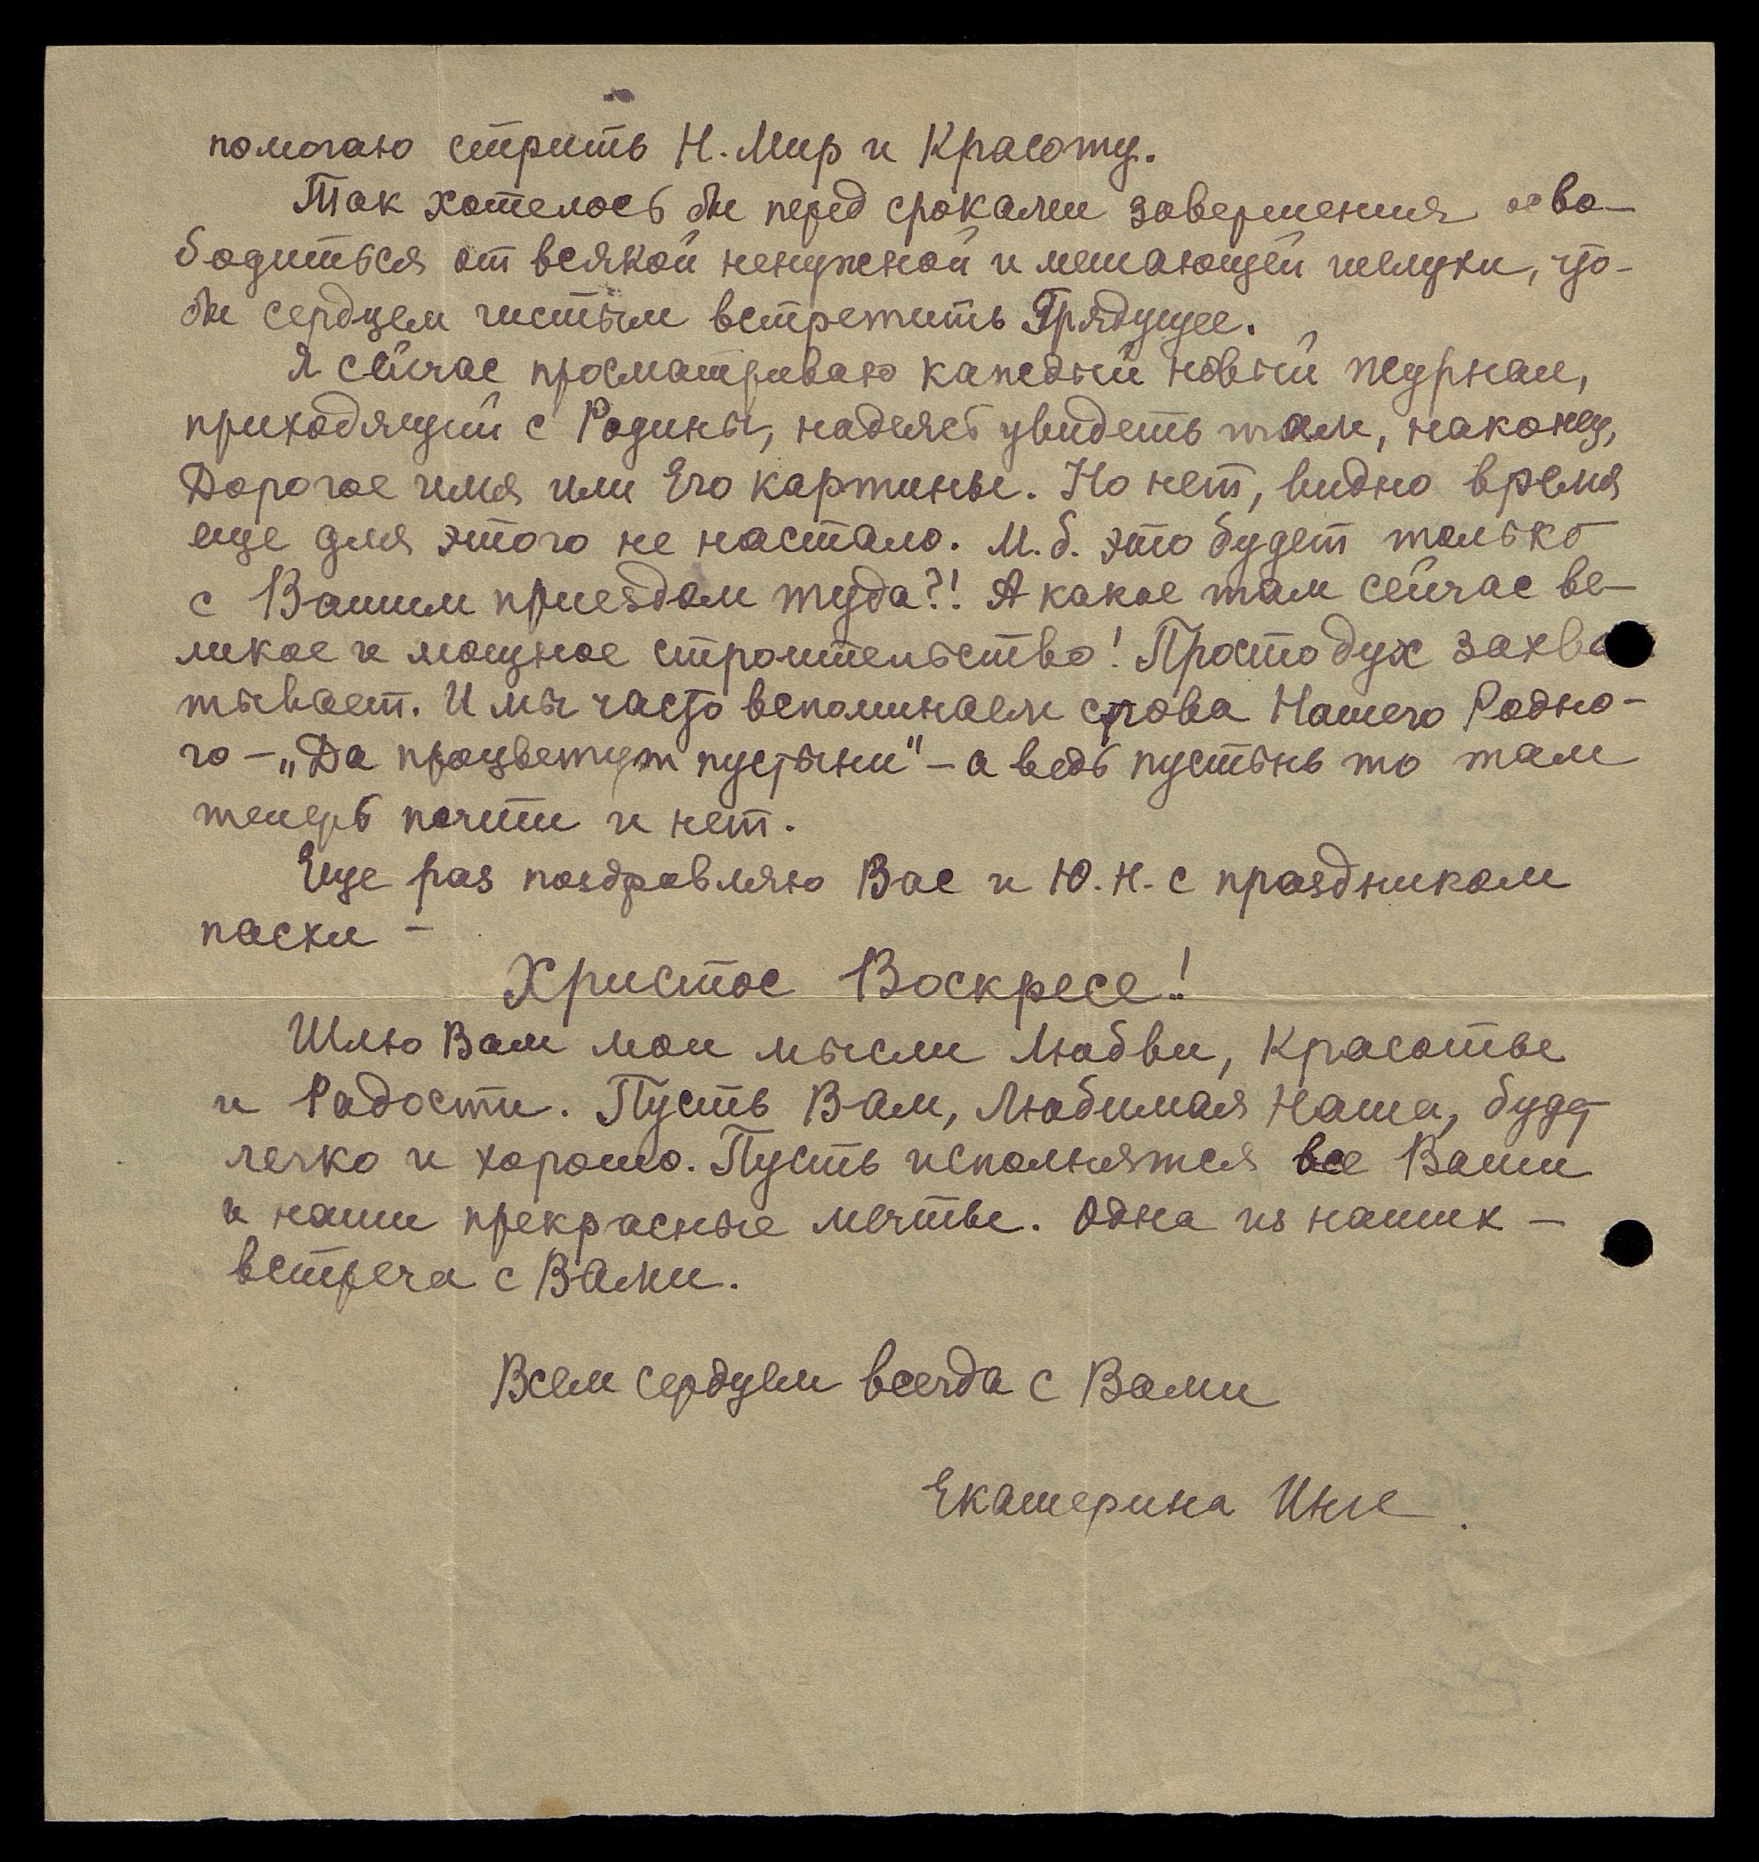 помогаю стрить Н. Мир и Красоту.
Так хотелось бы перед сроками завершения осво-
бодиться от всякой ненужной и мешающей шелухи, что-
бы сердцем чистым встретить Грядущее.
Я сейчас просматриваю каждый новый журнал,
приходящий с Родины, надеясь увидеть там, наконец,
Дорогое имя или Его картины. Но нет, видно время
еще для этого не настало. М.б. это будет только
с Вашим приездом туда?! А какое там сейчас ве-
ликое и мощное строительство! Просто дух захва
тывает. И мы часто вспоминаем слова Нашего Родно-
го – „Да процветут пустыни" – а ведь пустынь то там
теперь почти и нет.
Еще раз поздравляю Вас и Ю.Н. с праздником
пасхи –
Христос Воскресе!
Шлю Вам мои мысли Любви, Красоты
и Радости. Пусть Вам, Любимая Наша, будет
легко и хорошо. Пусть исполнятся все Ваши
и наши прекрасные мечты. Одна из наших –
встреча с Вами.
Всем сердцем всегда с Вами
Екатерина Инге.